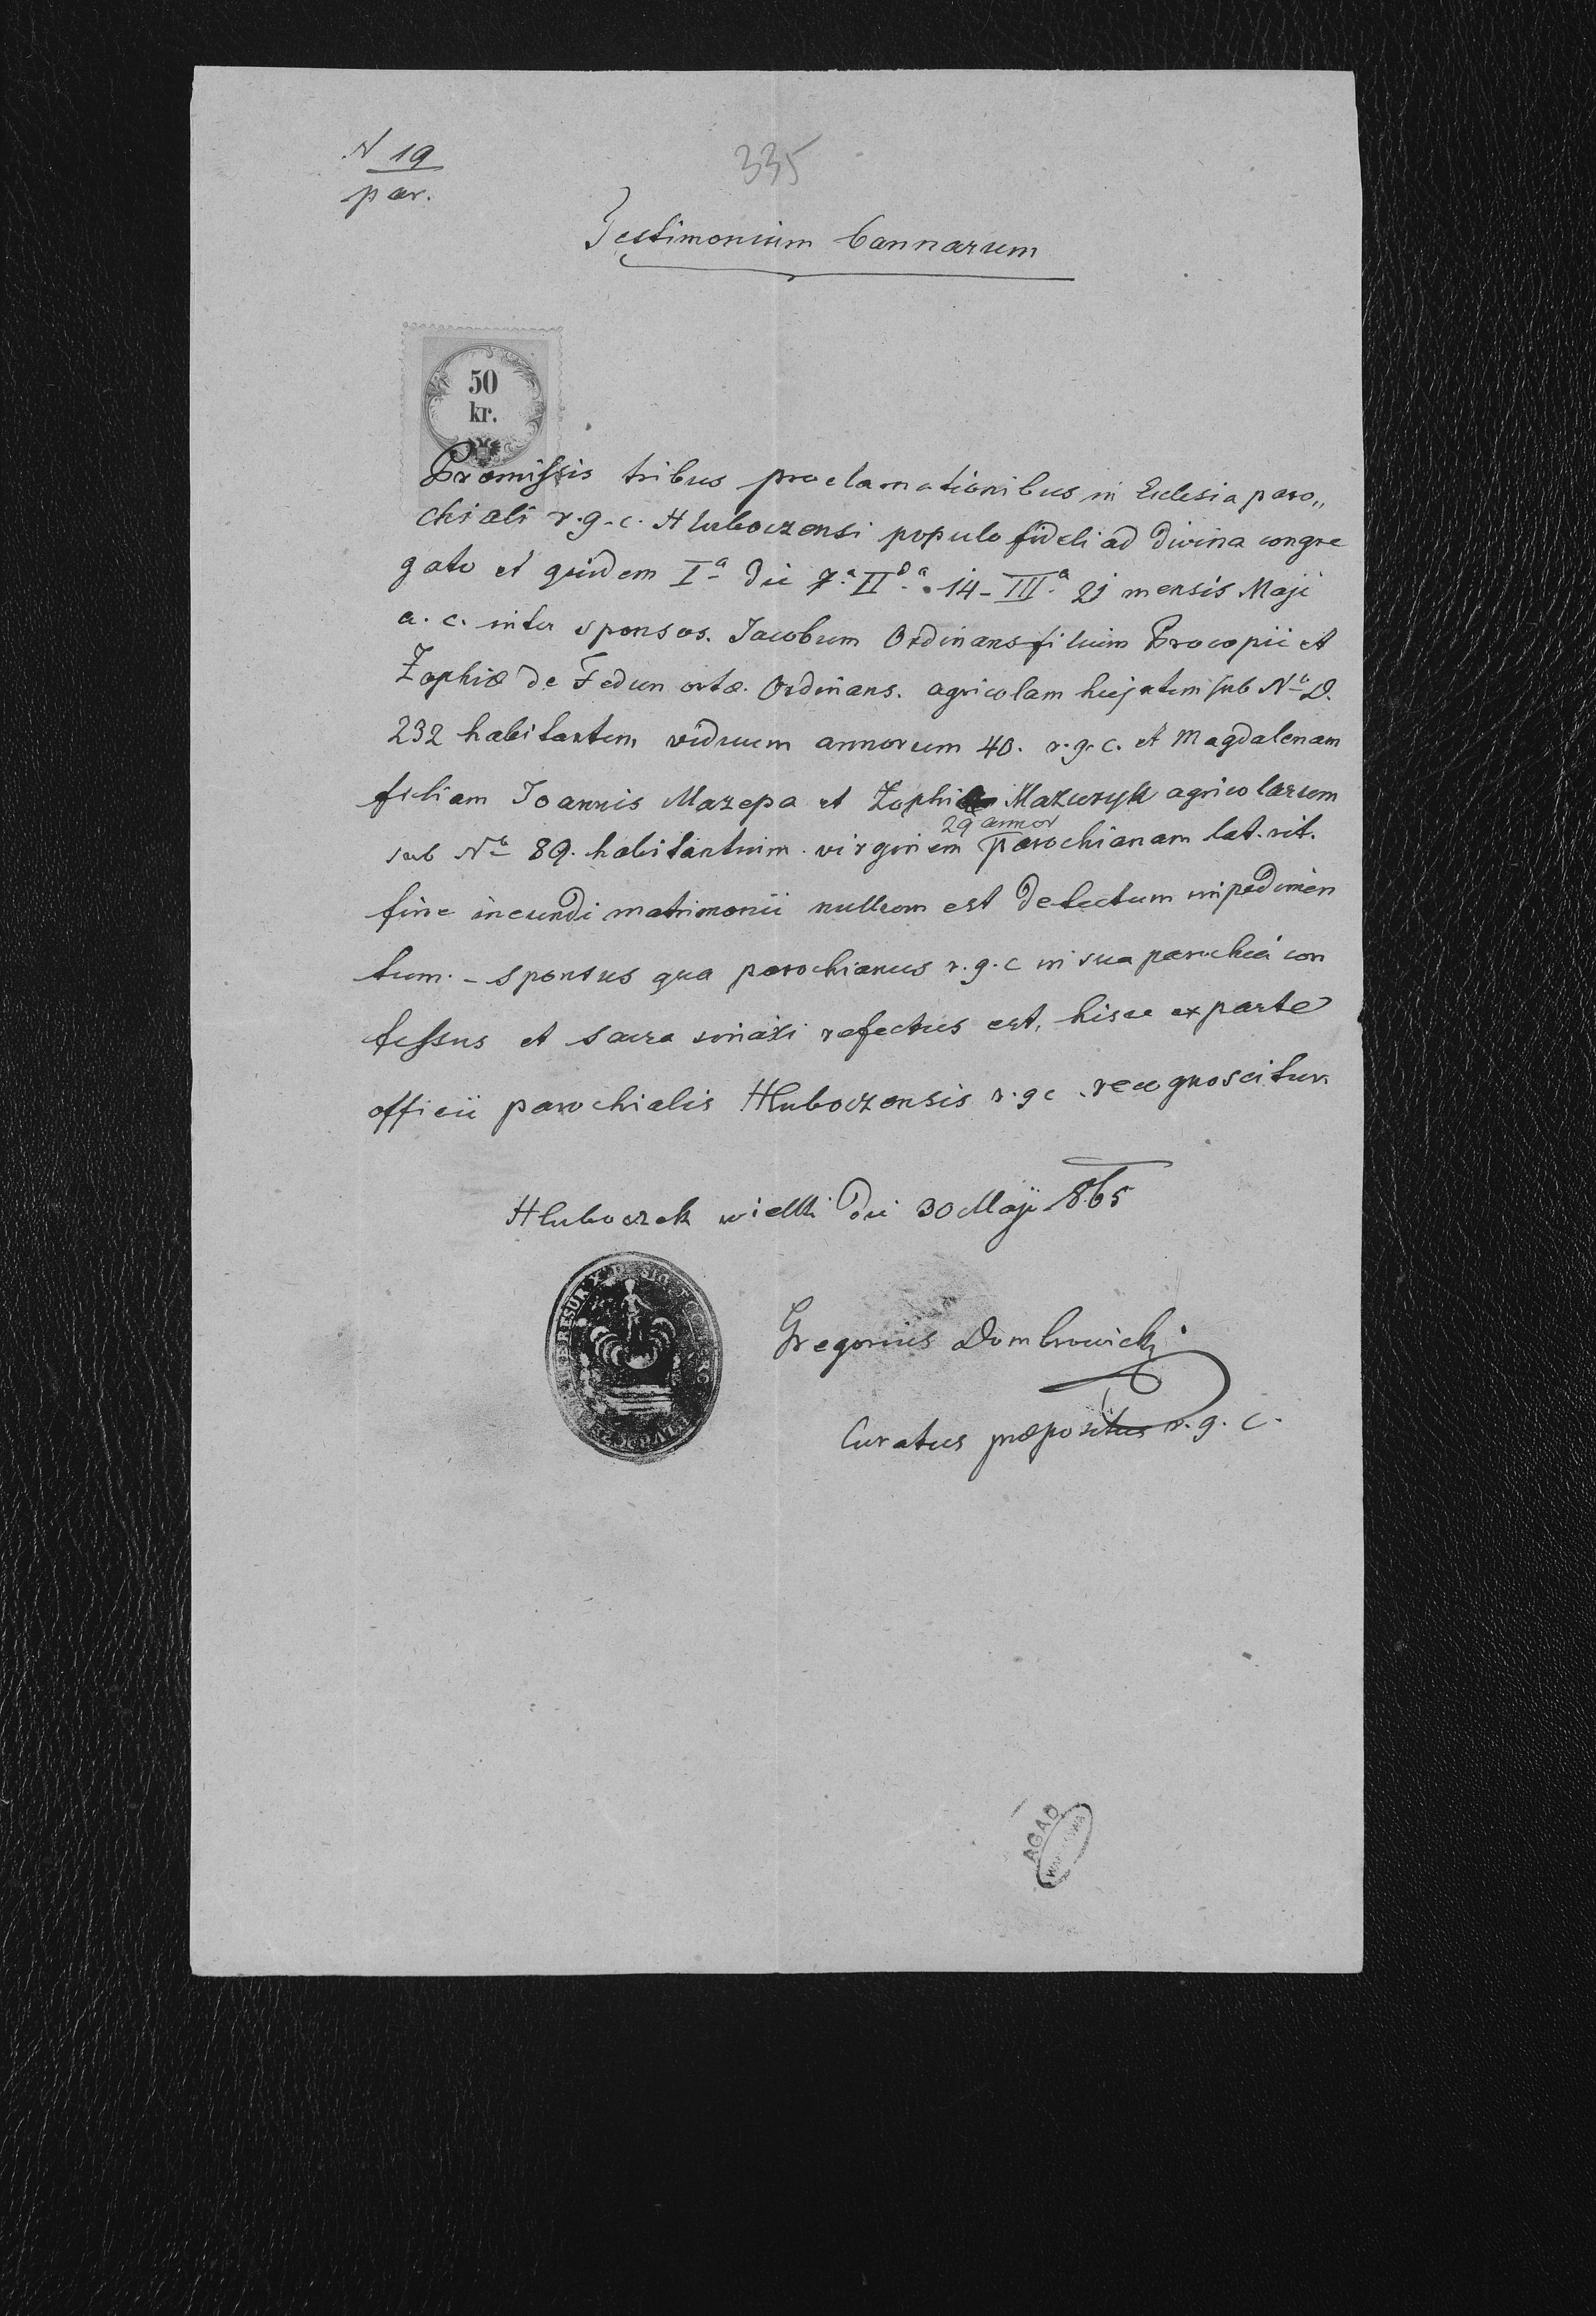 N 19
par.
335
Testimonium bannarum
50
kr.
Præmissis tribus proclamationibus in Eclesia paro„
chiali r.g.c. Hluboczensi populo fideli ad divina congre
gato et quidem Iª die 7ª IIdª 14 - IIIª 21 mensis Maji
a. c. inter sponsos. Jacobum Ordinans filium Procopii et
Zophiæ de Fedun ortæ. Ordinans. agricolam hujatem sub No D.
232 habitantem viduum annorum 40. r.g.c. et Magdalenam
filiam Joannis Mazepa et Zophi Mazuryk agricolarum
29 annor
sub No 89. habitantium. virginem parochianam lat. rit.
fine ineundi matrimonii nullum est detectum impedimen
tum. - sponsus qua parochianus r.g.c in sua parochia con
fessus et sacra sinaxi refectus est, hisce ex parte
officii parochialis Hluboczensis r.g c. recognoscitur.
Hluboczek wielki die 30 Maji 865
Gregorius Dombrowicki
Curatus præpositus r.g.c.
RESUR
AGAD